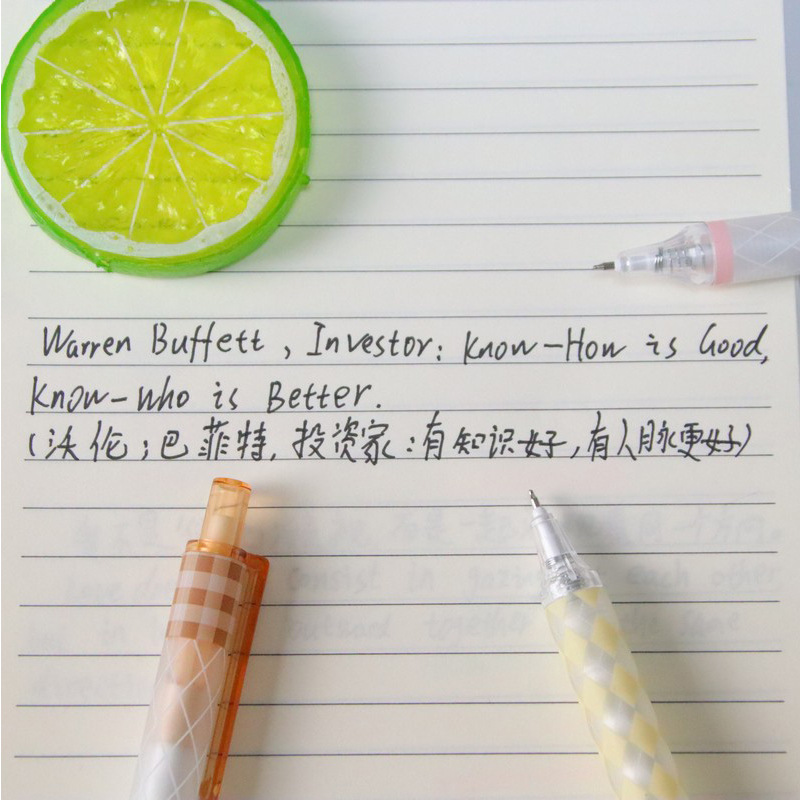 Warren Buffett, Investor: Know-How is Good,
Know-Who is Better.
(沃伦;巴菲特,投资家:有知识好,有人脉更好)
consist in each other
in outward together the same